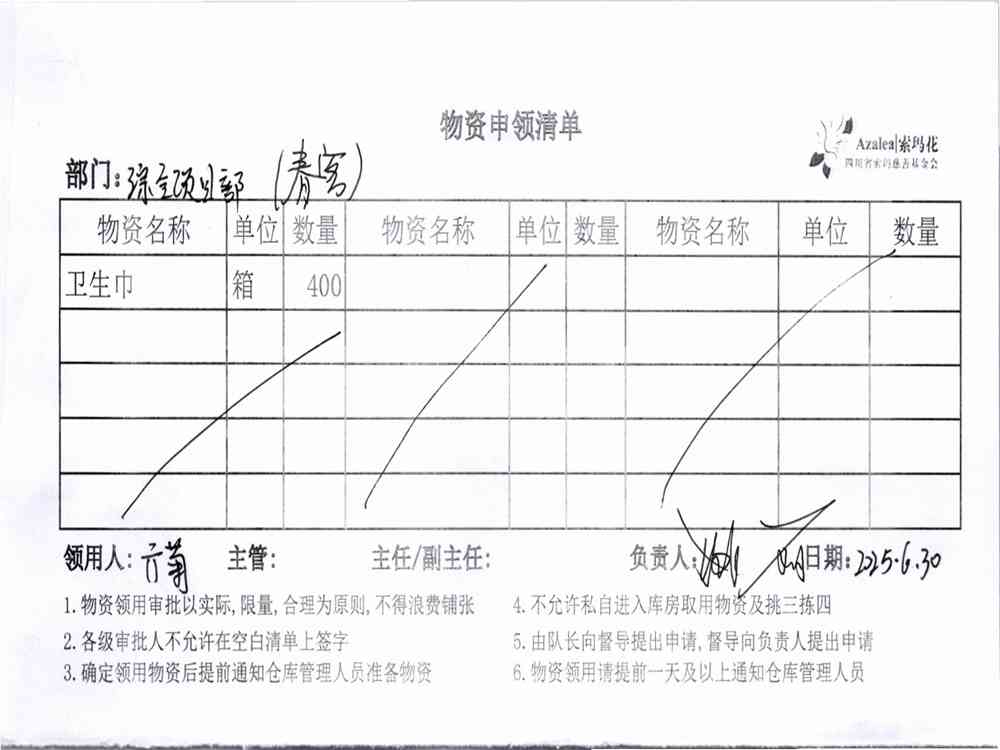 物资申领清单
Azalea|索玛花
四川省索玛慈善基金会
部门:综合项目部
物资名称 单位 数量 物资名称 单位 数量 物资名称 单位 数量
卫生巾 箱 400
领用人: 主管: 主任/副主任: 负责人: 日期:2025.6.30
1.物资领用审批以实际,限量,合理为原则,不得浪费铺张
2.各级审批人不允许在空白清单上签字
3.确定领用物资后提前通知仓库管理人员准备物资
4.不允许私自进入库房取用物资及挑三拣四
5.由队长向督导提出申请,督导向负责人提出申请
6.物资领用请提前一天及以上通知仓库管理人员